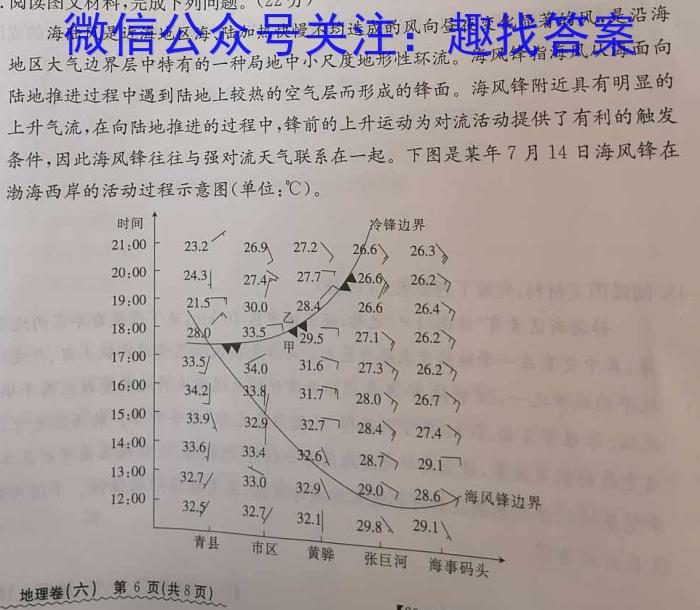 阅读图文材料,完成下列问题。(22分)
海陆风是近海地区海、陆加热快慢不均造成的风向昼夜变化显著的风,是沿海
微信公众号关注：趣找答案
地区大气边界层中特有的一种局地中小尺度地形性环流。海风锋指海风从海面向
陆地推进过程中遇到陆地上较热的空气层而形成的锋面。海风锋附近具有明显的
上升气流,在向陆地推进的过程中,锋前的上升运动为对流活动提供了有利的触发
条件,因此海风锋往往与强对流天气联系在一起。下图是某年7月14日海风锋在
渤海西岸的活动过程示意图(单位:℃)。
时间 冷锋边界
21:00 23.2 26.9 27.2 26.6 26.3
20:00 24.3 27.4 27.7 26.6 26.2
19:00 21.5 30.0 28.4 26.6 26.4
乙
18:00 28.0 33.5 29.5 27.1 26.2
甲
17:00 33.5 34.0 31.6 27.3 26.2
16:00 34.2 33.8 31.7 28.0 26.7
15:00 33.9 32.9 32.7 28.4 27.4
14:00 33.6 33.4 32.6 28.7 29.1
13:00 32.7 33.0 32.9 29.0 28.6 海风锋边界
12:00 32.5 32.7 32.1 29.8 29.1
青县 市区 黄骅 张巨河 海事码头
地理卷(六) 第6页(共8页)